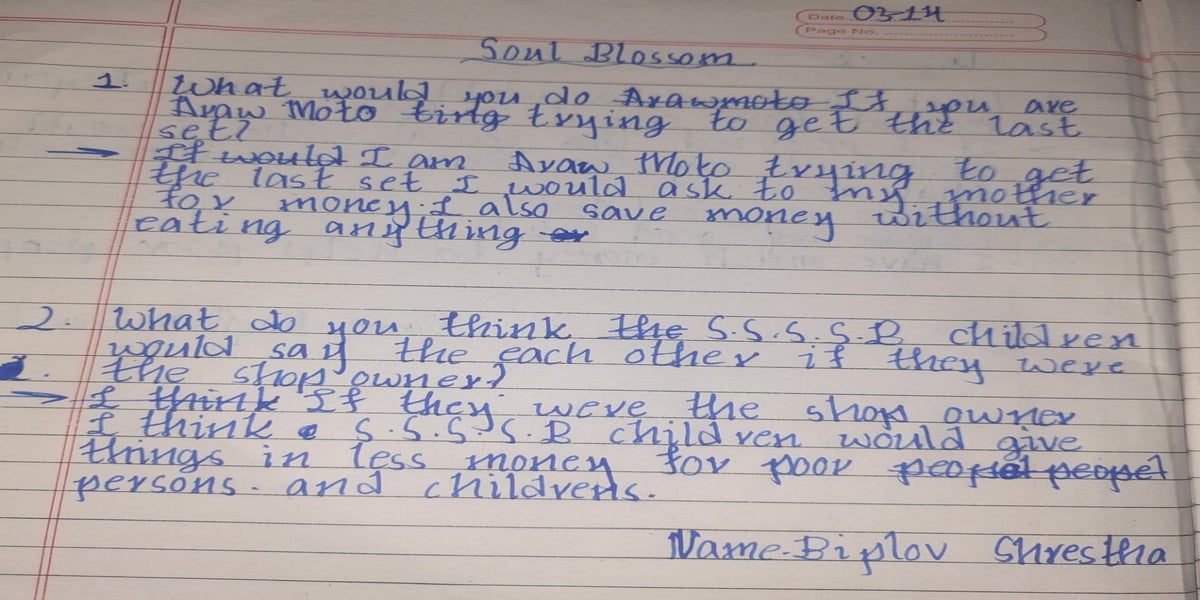 Date 03-14
Page No.
Soul Blossom
1. What would you do Arawmoto If you are
Araw Moto ting trying to get the last
set?
→ If would I am Araw Moto trying to get
the last set I would ask to my mother
for money. I also save money without
eating anything or
2. What do you think the S.S.S.S.B children
would say the each other if they were
the shop owner?
→ I think If they were the shop owner
I think S.S.S.S.B children would give
things in less money for poor peopel peopel
persons. and childrens.
Name-Biplov Shrestha